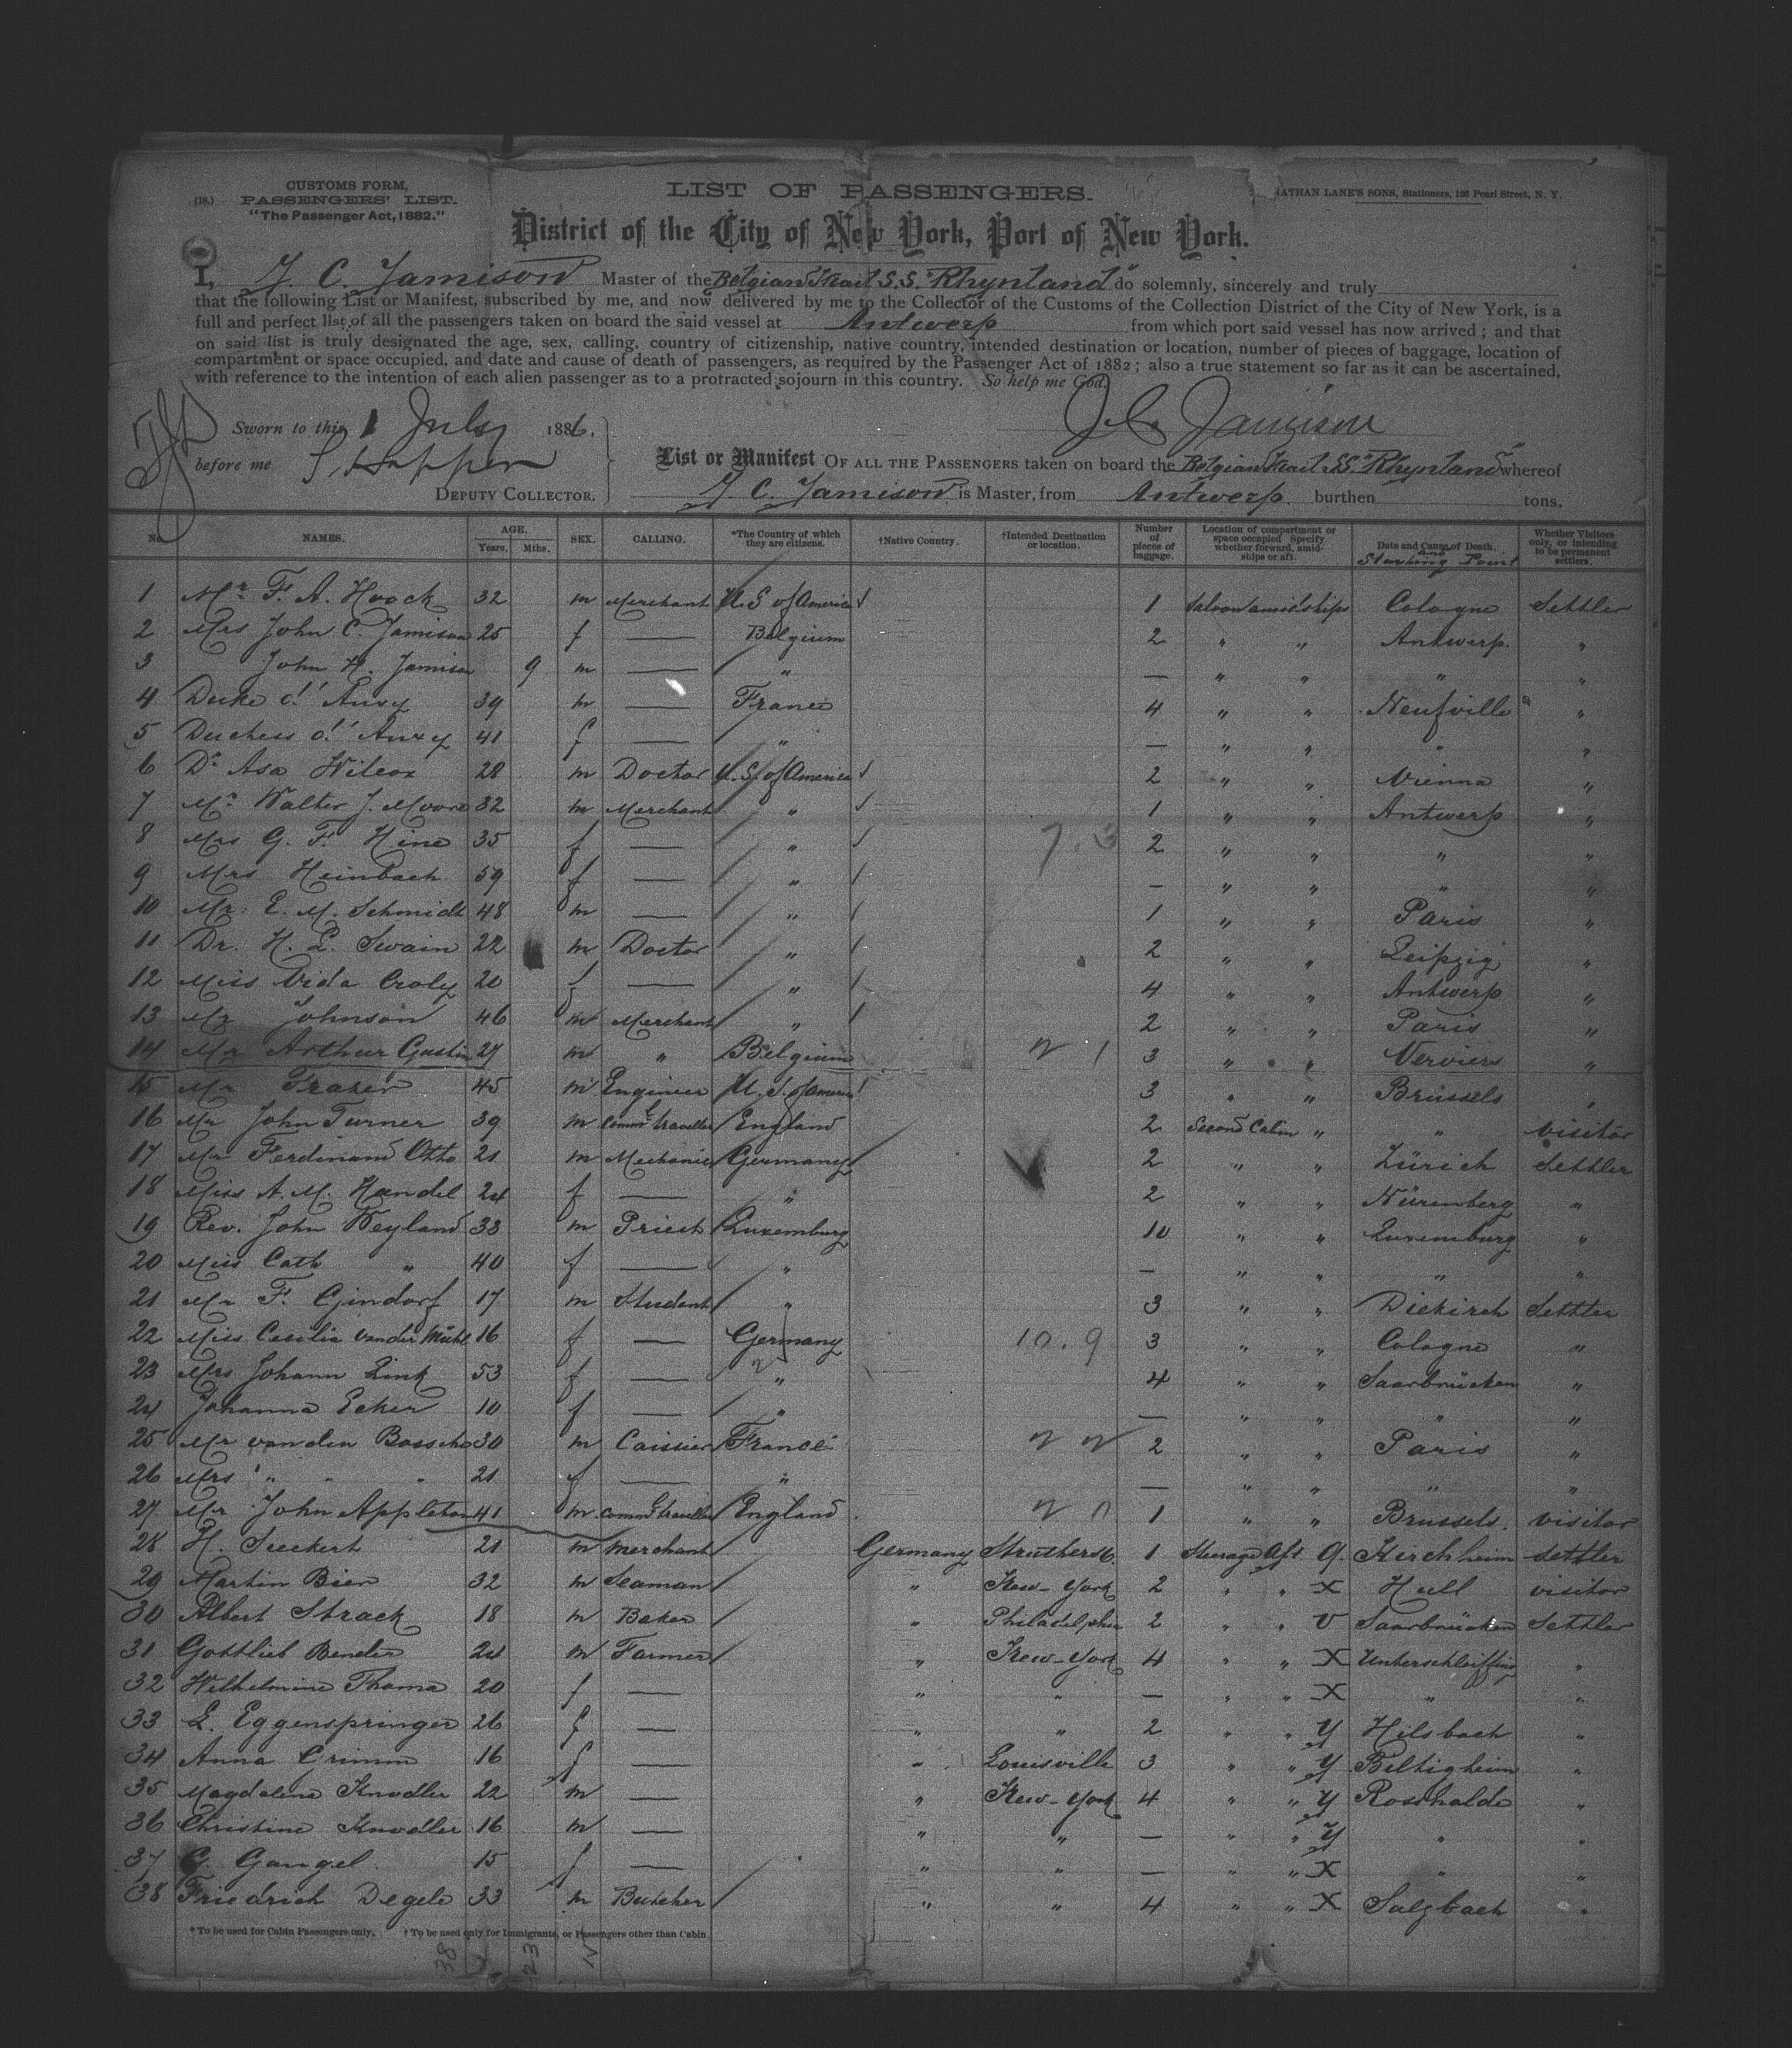 (18.) CUSTOMS FORM, PASSENGERS' LIST. "The Passenger Act, 1882."
LIST OF PASSENGERS.
NATHAN LANE'S SONS, Stationers, 126 Pearl Street, N. Y.
District of the City of New York, Port of New York.
I, J. C. Jamison Master of the Belgian Mail S.S. "Rhynland" do solemnly, sincerely and truly
that the following List or Manifest, subscribed by me, and now delivered by me to the Collector of the Customs of the Collection District of the City of New York, is a
full and perfect list of all the passengers taken on board the said vessel at Antwerp from which port said vessel has now arrived; and that
on said list is truly designated the age, sex, calling, country of citizenship, native country, intended destination or location, number of pieces of baggage, location of
compartment or space occupied, and date and cause of death of passengers, as required by the Passenger Act of 1882; also a true statement so far as it can be ascertained,
with reference to the intention of each alien passenger as to a protracted sojourn in this country. So help me God.
J. C. Jamison
Sworn to this 1 July 1886.
before me
DEPUTY COLLECTOR.
List or Manifest OF ALL THE PASSENGERS taken on board the Belgian Mail S.S. "Rhynland" whereof
J. C. Jamison is Master, from Antwerp burthen tons.
No. NAMES. AGE. Years. Mths. SEX. CALLING. *The Country of which they are citizens. †Native Country. †Intended Destination or location. Number of pieces of baggage. Location of compartment or space occupied. Specify whether forward, amidships or aft. Date and Cause of Death. and Starting Point Whether Visitors only, or intending to be permanent settlers.
1 Mr. F. A. Hoock 32 m Merchant U.S of America 1 Saloon amidships Cologne Settler
2 Mrs John C. Jamison 25 f — Belgium 2 " " Antwerp. "
3 John H. Jamison 9 m — " — " " " "
4 Duke d'Auxy 39 m — France 4 " " Neufville "
5 Duchess d'Auxy 41 f — " — " " " "
6 Dr. Asa Wilcox 28 m Doctor U.S. of America 2 " " Vienna "
7 Mr. Walter J. Moore 32 m Merchant " 1 " " Antwerp "
8 Mrs G. F. Hine 35 f — " 2 " " " "
9 Mrs Heinbach 59 f — " — " " " "
10 Mr. E. M. Schmidt 48 m — " 1 " " Paris "
11 Dr. H. L. Swain 22 m Doctor " 2 " " Leipzig "
12 Miss Vida Croly 20 f — " 4 " " Antwerp "
13 Mr Johnson 46 m Merchant " 2 " " Paris "
14 Mr Arthur Gastin 27 m " Belgium 3 " " Verviers "
15 Mr Frazer 45 m Engineer U.S. of America 3 " " Brussels "
16 Mr John Turner 39 m Comml traveller England 2 Second Cabin " " visitor
17 Mr Ferdinand Otto 21 m Mechanic Germany 2 " " Zürich Settler
18 Miss A. M. Handel 24 f — " 2 " " Nüremberg "
19 Rev. John Weyland 33 m Priest Luxemburg 10 " " Luxemburg "
20 Miss Cath " 40 f — " — " " " "
21 Mr F. Gindorf 17 m Student " 3 " " Diekirch Settler
22 Miss Cecilia van der Mühl 16 f — Germany 10.9 3 " " Cologne "
23 Mrs Johann Link 53 f — " 4 " " Saarbrücken "
24 Johanna Ecker 10 f — " — " " " "
25 Mr van den Bossche 30 m Caissier France 2 " " Paris "
26 Mrs " " " 21 f — " — " " " "
27 Mr John Appleton 41 m Comml traveller England 1 " " Brussels. visitor
28 H. Seeckert 21 m merchant Germany Struthers O. 1 Steerage Aft Q. Kirchheim settler
29 Martin Bier 32 m Seaman " New-York 2 " " X Hull visitor
30 Albert Strack 18 m Baker " Philadelphia 2 " " V Saarbrücken Settler
31 Gottlieb Bender 24 m Farmer " New-York 4 " " X "
32 Wilhelmine Thoma 20 f — " " — " " X " "
33 L. Eggenspringer 26 f — " " 2 " " Y Hilsbach "
34 Anna Grimm 16 f — " Louisville 3 " " Y Beltigheim "
35 Magdalena Knodler 22 m — " New-York 4 " " Y Rosshalde "
36 Christine Knodler 16 m — " " — " " Y " "
37 G. Gangel 15 f — " " — " " X " "
38 Friedrich Degele 33 m Butcher " " 4 " " X Sulzbach "
* To be used for Cabin Passengers only. † To be used only for Immigrants, or Passengers other than Cabin
38 23